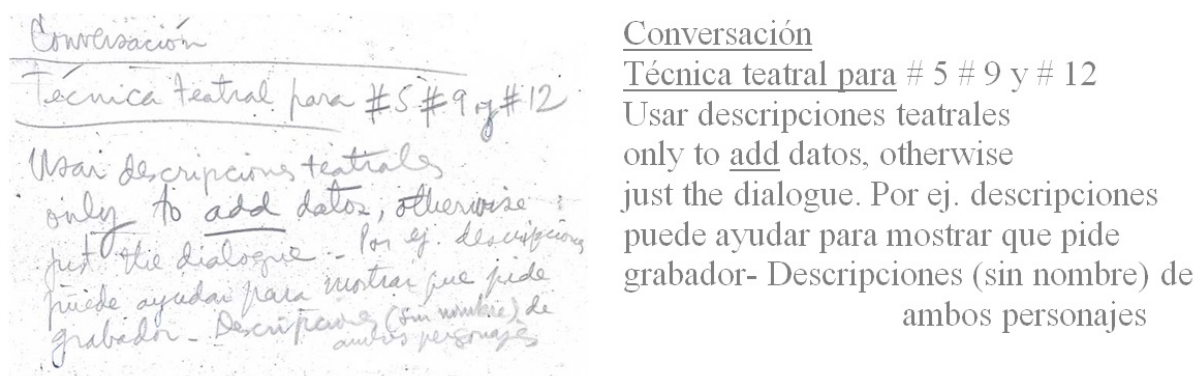 Conversación
Técnica teatral para #5 #9 y #12
Usar descripciones teatrales
only to add datos, otherwise
just the dialogue - Por ej. descripciones
puede ayudar para mostrar que pide
grabador - Descripciones (sin nombre) de
ambos personajes
Conversación
Técnica teatral para # 5 # 9 y # 12
Usar descripciones teatrales
only to add datos, otherwise
just the dialogue. Por ej. descripciones
puede ayudar para mostrar que pide
grabador- Descripciones (sin nombre) de
ambos personajes